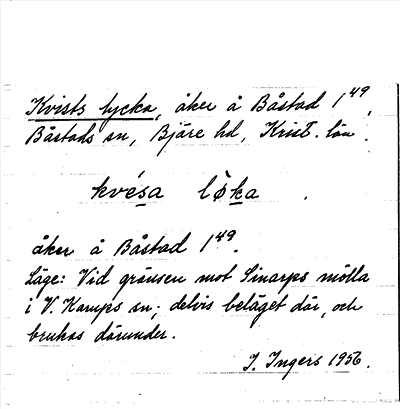 Kvists lycka, åker å Båstad 1⁴⁹,
Båstads sn, Bjäre hd, Krist. län.
kvésa lø̀ka.
åker å Båstad 1⁴⁹.
Läge: Vid gränsen mot Sinarps mölla
i V. Karups sn; delvis beläget där, och
brukas därunder.
I. Ingers 1956.